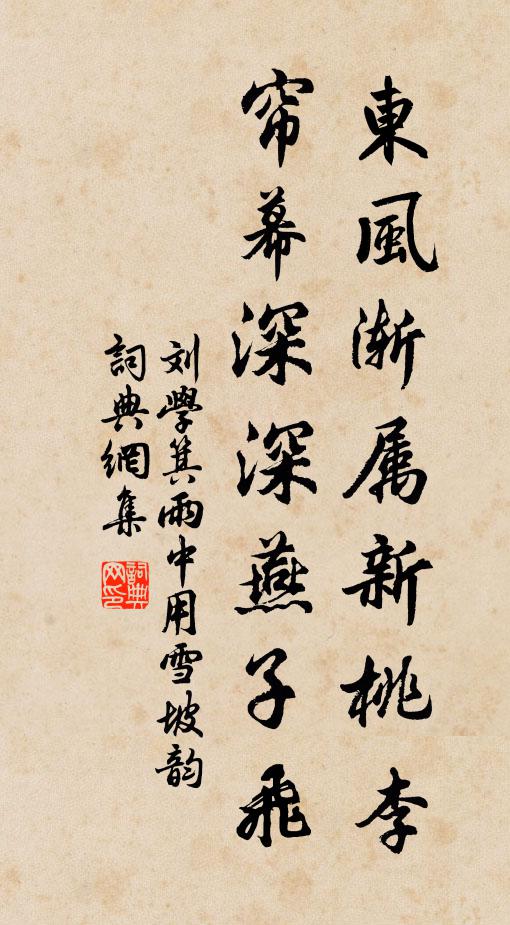 東風渐属新桃李
帘幕深深燕子飛
刘學箕雨中用雪坡韵
詞典網集
詞典网印